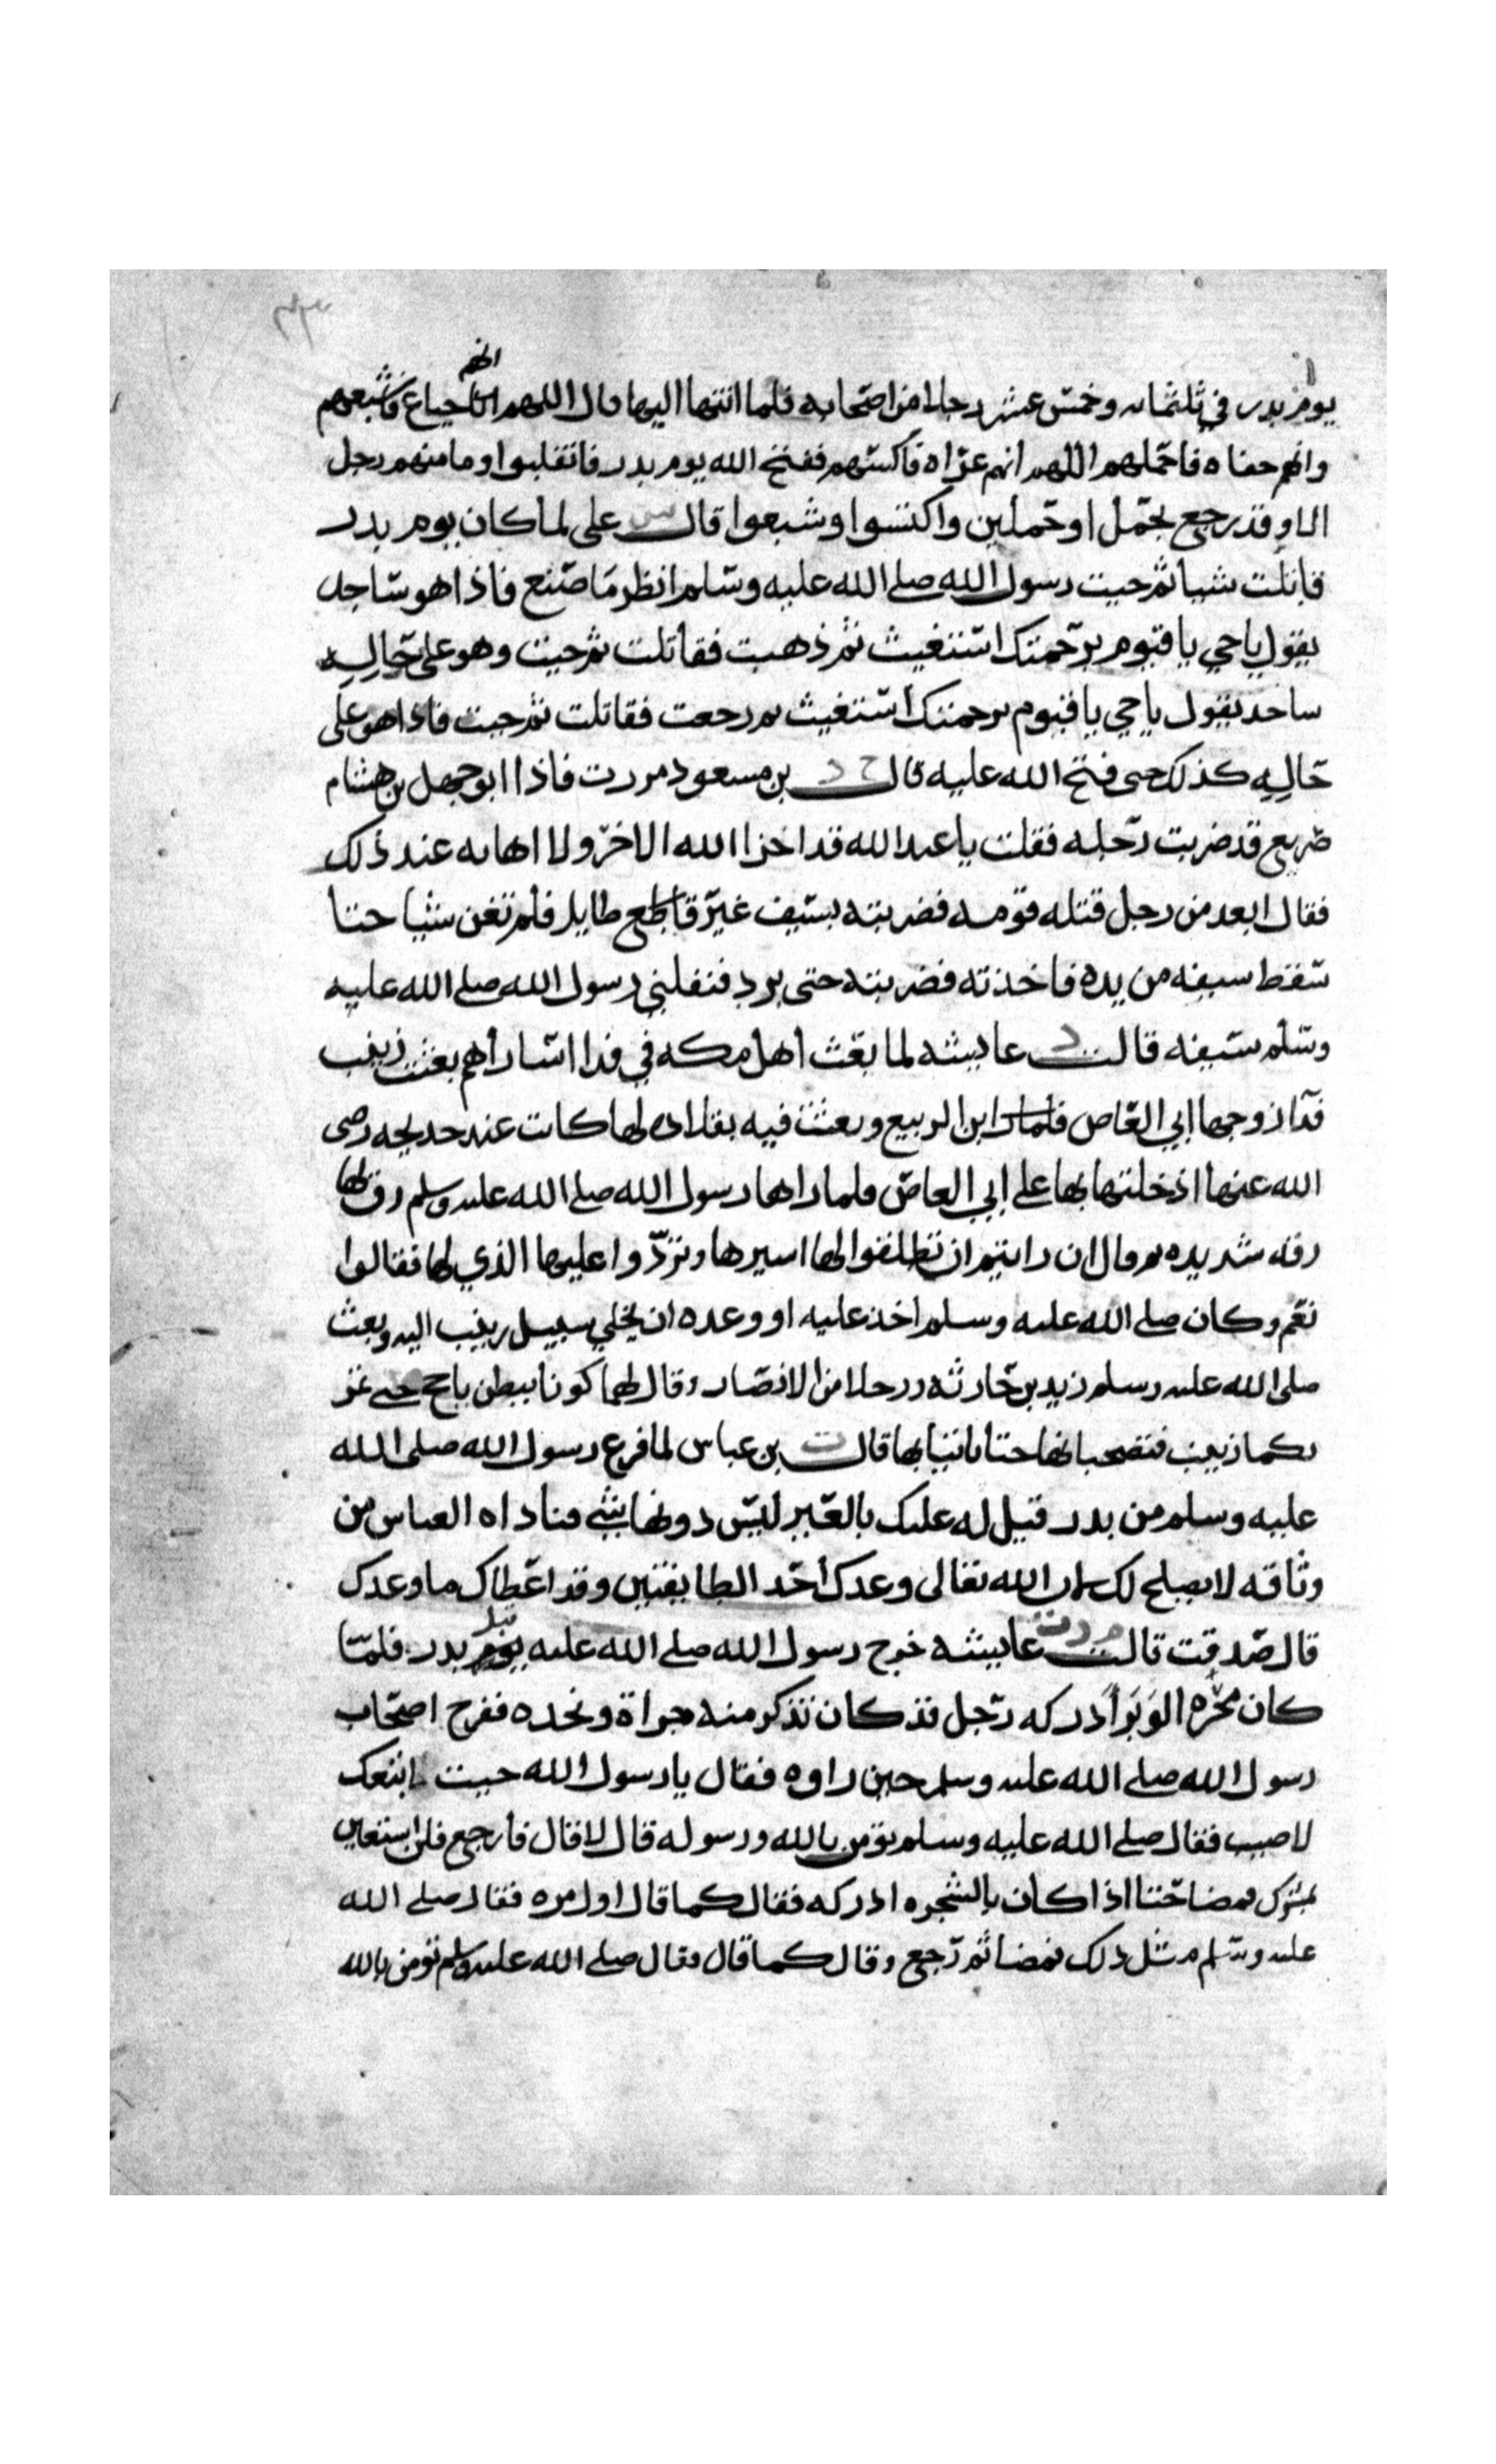 انهم
يوم بدر في ثلثمائه وخمس عشر رجلا من اصحابه فلما انتها اليها قال اللهم جياع فاشبعهم
وانهم حفاه فاحملهم اللهم انهم عراه فاكسهم ففتح الله يوم بدر فانقلبوا وما منهم رجل
الا وقد رجع بحمل او حملين واكتسوا وشبعوا قال س علي لما كان يوم بدر
قاتلت شيا ثم جيت رسول الله صلى الله عليه وسلم انظر ما صنع فاذا هو ساجد
يقول يا حي يا قيوم برحمتك استغيث ثم ذهبت فقاتلت ثم جيت وهو على حاله
ساجد يقول يا حي يا قيوم برحمتك استغيث ثم رجعت فقاتلت ثم جيت فاذا هو على
حاله كذلك حتى فتح الله عليه قال خ د بن مسعود مررت فاذا ابو جهل بن هشام
صريع قد ضربت رجله فقلت يا عبد الله قد اخزا الله الاخر ولا اهابه عند ذلك
فقال ابعد من رجل قتله قومه فضربته بسيف غير قاطع طايل فلم تغن شيا حتا
سقط سيفه من يده فاخذته فضربته حتى برد فنفلني رسول الله صلى الله عليه
وسلم سيفه قالت د عايشه لما بعث اهل مكه في فدا اسارهم بعثت زينب
فدا زوجها ابي العاص ابن الربيع وبعثت فيه بقلاده لها كانت عند خديجه رضى
الله عنها ادخلتها بها على ابي العاص فلما راها رسول الله صلى الله عليه وسلم رق لها
رقه شديده ثم قال ان رايتم ان تطلقوا لها اسيرها وتردوا عليها الذي لها فقالوا
نعم وكان صلى الله عليه وسلم اخذ عليه او وعده ان يخلي سبيل زينب اليه وبعث
صلى الله عليه وسلم زيد بن حارثه ورجلا من الانصار وقال لهما كونا ببطن ياجج حتى تمر
بكما زينب فتصحبانها حتا تاتيا بها قال ت بن عباس لما فرغ رسول الله صلى الله
عليه وسلم من بدر قيل له عليك بالعير ليس دونها شي فناداه العباس من
وثاقه لا يصلح لك ان الله تعالى وعدك احد الطايفتين وقد اعطاك ما وعدك
قال صدقت قالت م د ت عايشه خرج رسول الله صلى الله عليه قبل بدر فلما
كان بحره الوبر ادركه رجل قد كان تذكر منه جراة ونجده ففرح اصحاب
رسول الله صلى الله عليه وسلم حين راوه فقال يا رسول الله جيت لاتبعك
لاصيب فقال صلى الله عليه وسلم تومن بالله ورسوله قال لا فقال فارجع فلن استعين
بمشرك فمضا حتا اذا كان بالشجره ادركه فقال كما قال اول مره فقال صلى الله
عليه وسلم مثل ذلك فمضا ثم رجع وقال كما قال وقال صلى الله عليه وسلم تومن بالله